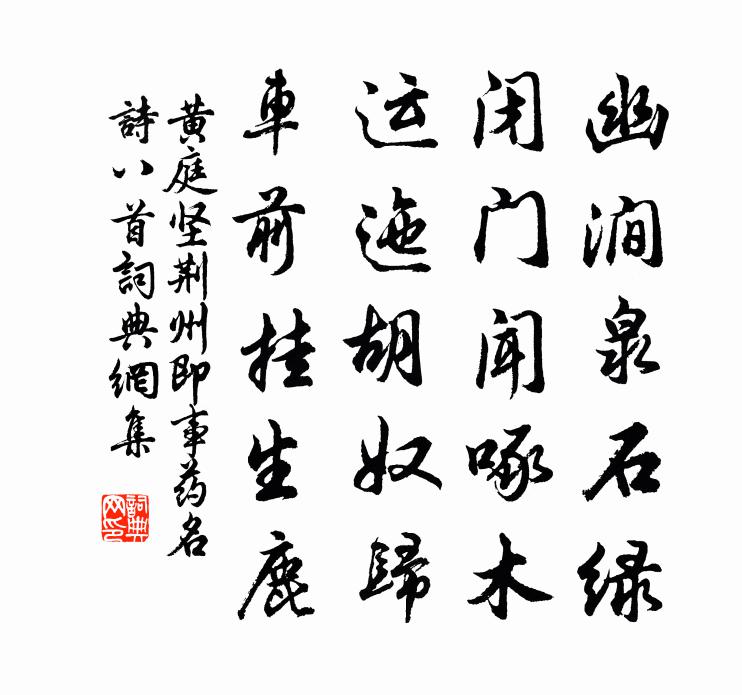 幽涧泉石绿
闭门闻啄木
运迤胡奴歸
車前挂生鹿
黄庭坚荆州即事药名
詩八首詞典網集
詞典网印